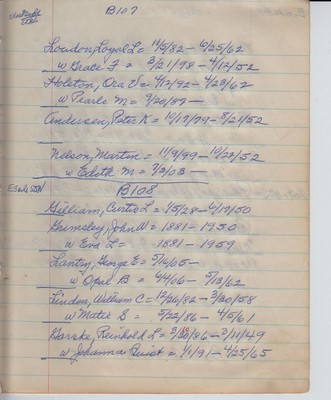 B107
Loudon, Loyal L = 11/5/82 - 6/25/62
w Grace F = 3/21/98 - 4/12/52
Holeton, Ora V = 4/12/92 - 4/23/62
w Pearle M = 9/20/87 -
Andersen, Peter K = 10/17/79 - 8/21/52
Nelson, Martin = 11/9/99 - 10/22/52
w Edith M = 7/3/03 -
B108
Gilliam, Curtis L = 1/5/28 - 6/19/50
Grimsley, John W = 1881 - 1950
w Eva L = 1881 - 1959
Lantry, George E = 5/16/05 -
w Opal B = 4/4/06 - 5/13/62
Linden, William C = 12/26/82 - 3/20/58
w Matie S = 5/22/86 - 4/5/61
Garske, Reinhold L = 3/20/86 - 3/11/49
w Johanna Quist = 4/1/91 - 4/25/65